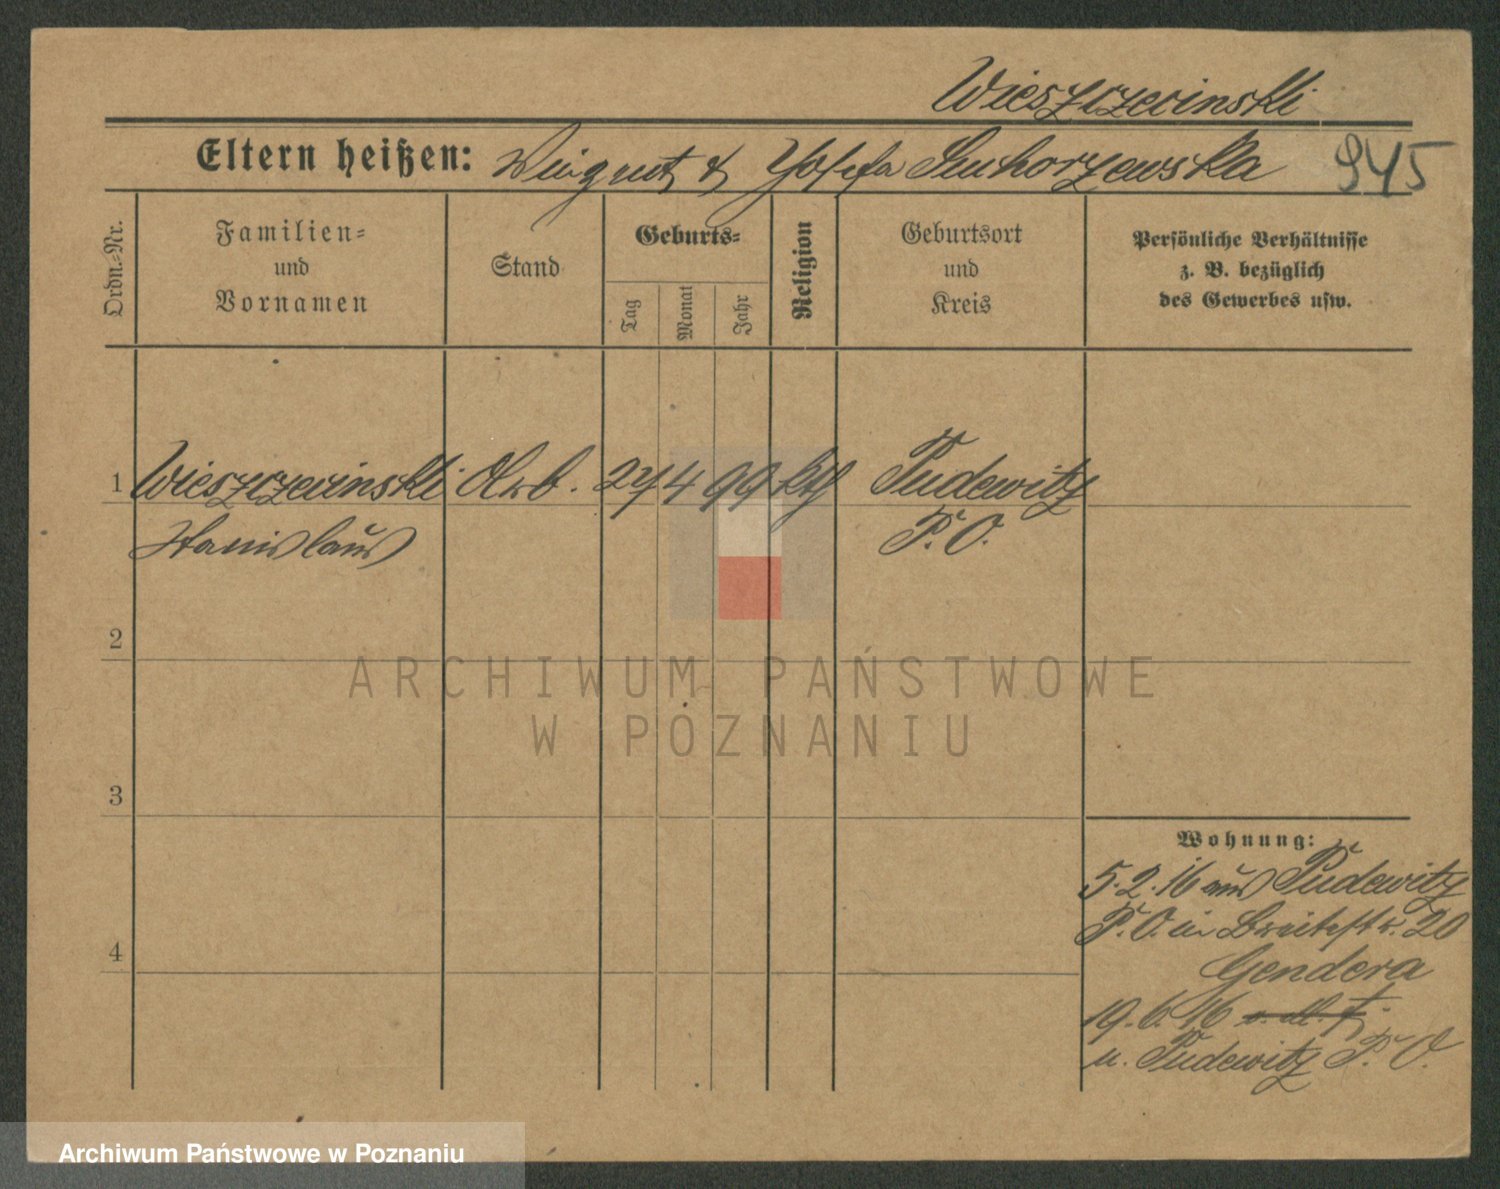 Wieszczecinski
Eltern heißen: & Josefa Suchorzewska 945
Ordn.-Nr.
Familien-
und
Vornamen
Stand
Geburts-
Tag
Monat
Jahr
Religion
Geburtsort
und
Kreis
Persönliche Verhältnisse
z. B. bezüglich
des Gewerbes usw.
1 Wieszczecinski Arb. 27 4 99 kth Pudewitz
Stanislaus P. O.
2
ARCHIWUM PAŃSTWOWE
W POZNANIU
3
Wohnung:
5.2.16 aus Pudewitz
P. O. in Breitestr. 20
4
Gendera
19.6.16
n. Pudewitz P. O.
Archiwum Państwowe w Poznaniu